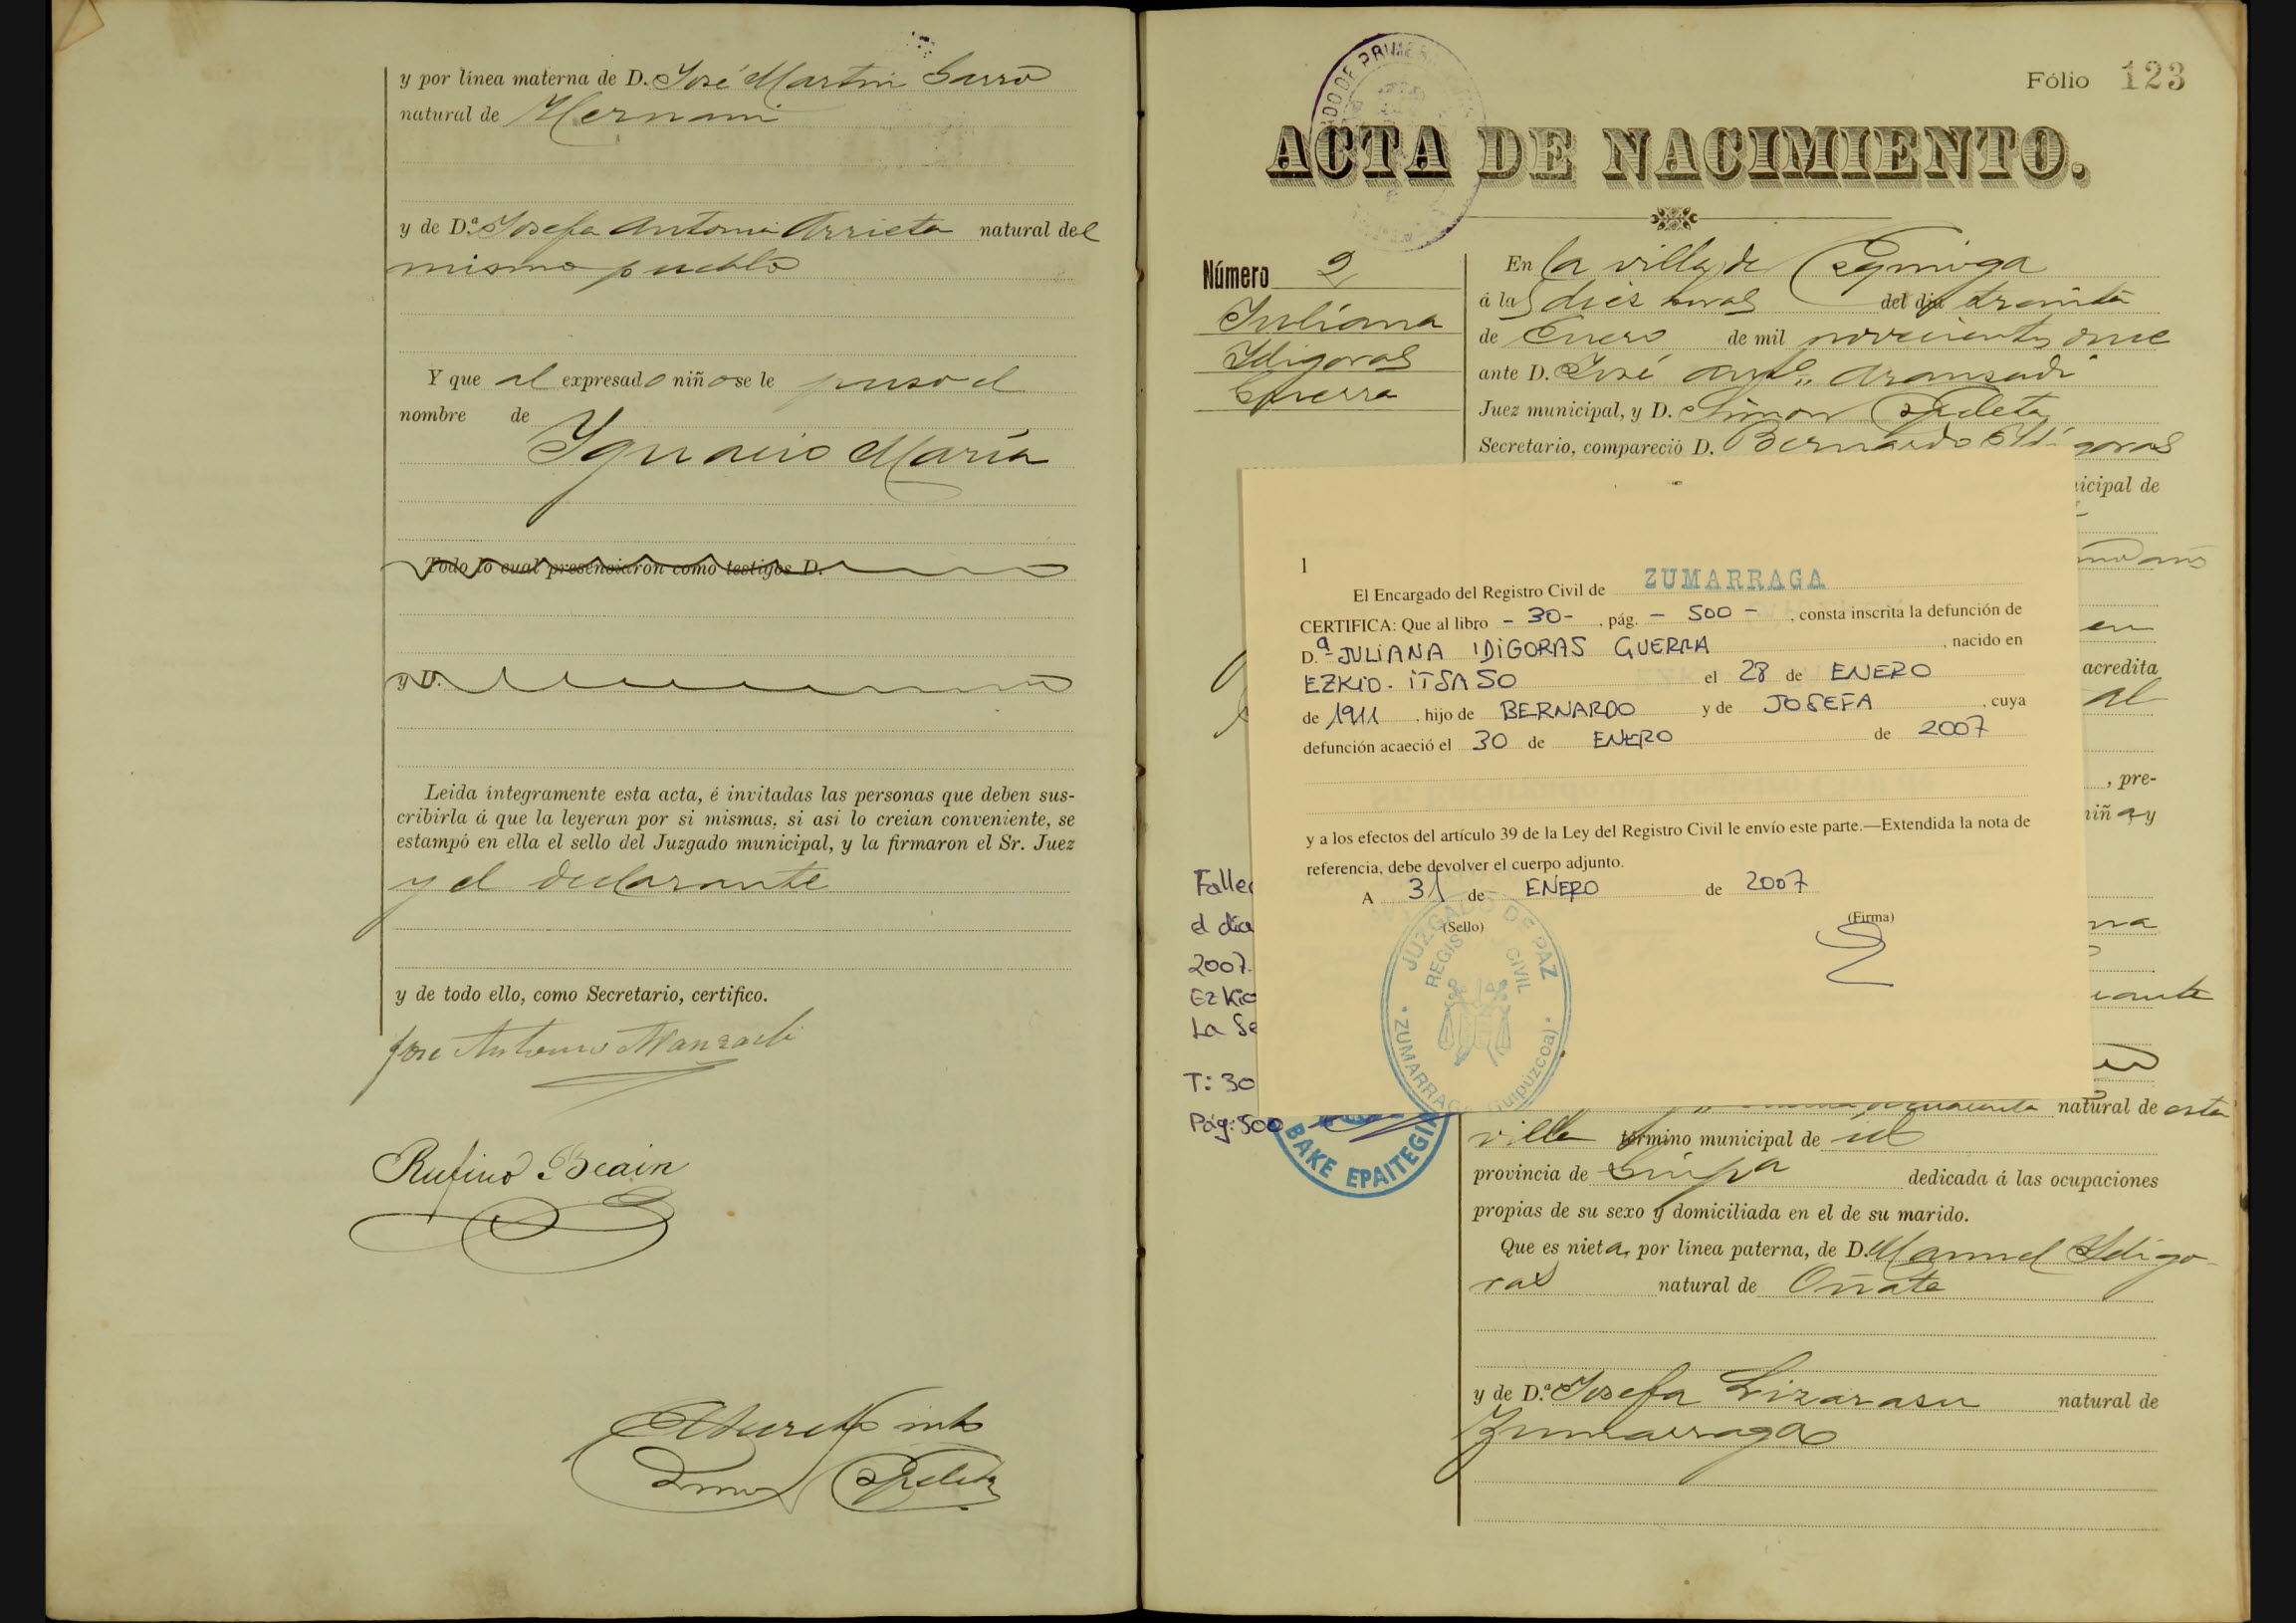 y por línea materna de D. José Martin Garro
natural de Hernani
y de D.ª Josefa Antonia Arrieta natural del
mismo pueblo
Y que al expresado niño se le puso el
nombre de
Ygnacio María
Todo lo cual presenciaron como testigos D.
y D.
Leida íntegramente esta acta, é invitadas las personas que deben sus-
cribirla á que la leyeran por si mismas, si asi lo creian conveniente, se
estampó en ella el sello del Juzgado municipal, y la firmaron el Sr. Juez
y el declarante
y de todo ello, como Secretario, certifico.
José Antonio Aranzadi
Rufino Beain
Fólio 123
ACTA DE NACIMIENTO.
Número 2
Juliana
Ydigoras
Guerra
En la villa de Ezquioga
á las diez horas del dia treinta
de Enero de mil novecientos once
ante D. José Antº. Aranzadi
Juez municipal, y D. Simon
Secretario, compareció D. Bernardo Ydigoras
icipal de
en
acredita
al
, pre-
niña y
1
El Encargado del Registro Civil de ZUMARRAGA
CERTIFICA: Que al libro - 30 - , pág. - 500 - , consta inscrita la defunción de
D.ª JULIANA IDIGORAS GUERRA , nacido en
EZKIO-ITSASO el 28 de ENERO
de 1911 , hijo de BERNARDO y de JOSEFA , cuya
defunción acaeció el 30 de ENERO de 2007
y a los efectos del artículo 39 de la Ley del Registro Civil le envío este parte.—Extendida la nota de
referencia, debe devolver el cuerpo adjunto.
A 31 de ENERO de 2007
(Sello) (Firma)
JUZGADO DE PAZ
REGISTRO CIVIL
ZUMARRAGA (Guipúzcoa)
Falle
el día
2007.
Ezkio
La Se
T: 30
Pág: 500
BAKE EPAITEGIA
natural de esta
villa término municipal de id
provincia de Guipª dedicada á las ocupaciones
propias de su sexo y domiciliada en el de su marido.
Que es nieta, por línea paterna, de D. Manuel Ydigo-
ras natural de Oñate
y de D.ª Josefa Lizarasu natural de
Zumarraga